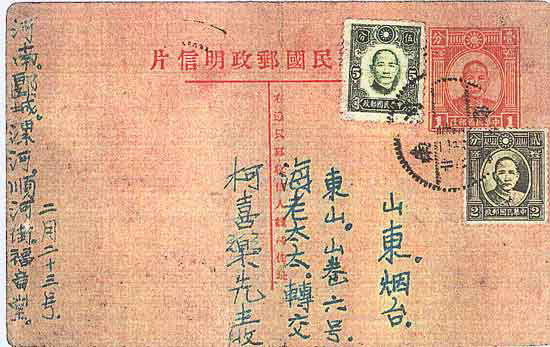 民國郵政明信片
分
1
中華民國郵政
伍分
5
中華民國郵政
分
2
2
中華民國郵政
山東.烟台.
東山.山巷六号.
海老太太.轉交
柯喜樂先生收
二月二十三号.
河南.郾城.漯河順河街.福音堂.